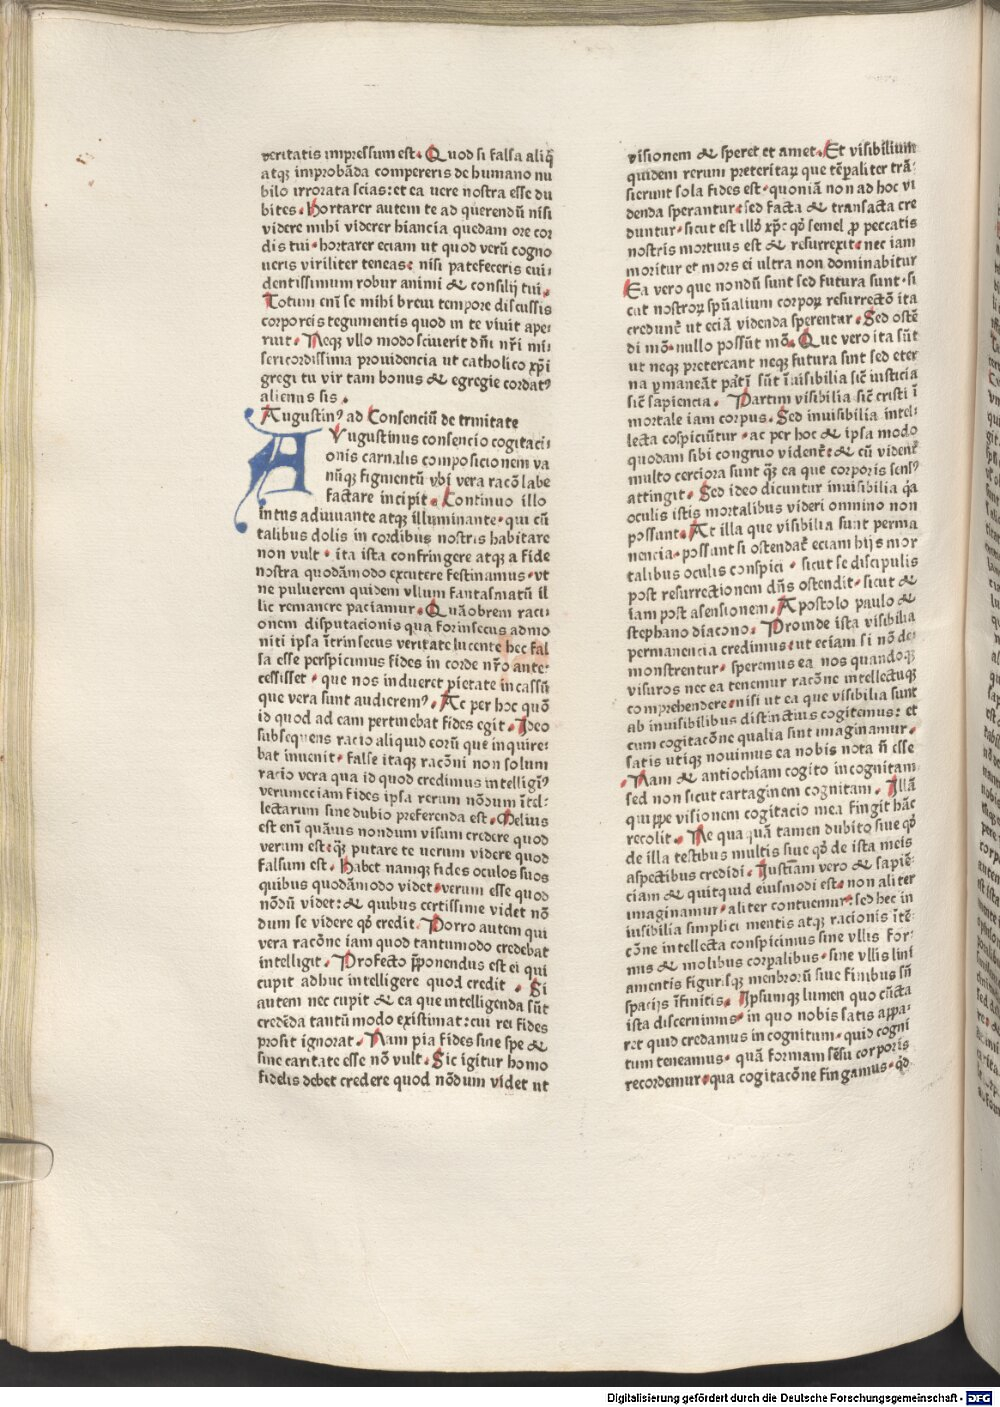 veritatis impressum est. Quod si falsa aliq̄
atqꝫ improbāda compereris de humano nu
bilo irrorata scias: et ea uere nostra esse du
bites. Hortarer autem te ad querendū nisi
videre mihi viderer hiancia quedam ore cor
dis tui. hortarer eciam ut quod verū cogno
ueris viriliter teneas: nisi patefeceris eui/
dentissimum robur animi & consilij tui.
Totum cnī se mihi breui tempore discussis
corporeis tegumentis quod in te vivit ape/
ruit. Neqꝫ vllo modo sciuerit dn̄i nr̄i mi/
sericordissima prouidencia ut catholico xp̄i
gregi tu vir tam bonus & egregie cordatꝰ
alienus sis.
Augustinꝰ ad Consenciū de trinitate
AVgustinus consencio cogitaci/
onis carnalis composicionem va
nūqꝫ figmentū vbi vera racō labe
factare incipit. Continuo illo
intus adiuuante atqꝫ illuminante. qui cū
talibus dolis in cordibus nostris habitare
non vult. ita ista confringere atqꝫ a fide
nostra quodāmodo excutere festinamus. vt
ne puluerem quidem vllum fantasmatū il
lic remanere paciamur. Quāobrem raci
onem disputacionis qua forinsecus admo
niti ipsa ītrinsecus veritate lucente hec fal
sa esse perspicimus fides in corde nr̄o ante/
cessisset. que nos indueret pietate in cassū
que vera sunt audieremꝰ. Ac per hoc quō
id quod ad eam pertinebat fides egit. Ideo
subsequens racio aliquid eorū que inquire/
bat inuenit. false itaqꝫ racōni non solum
racio vera qua id quod credimus intelligīꝰ
verumeciam fides ipsa rerum nōdum ītel/
lectarum sine dubio preferenda est. Melius
est enī quāuis nondum visum credere quod
verum est. qꝫ putare te uerum videre quod
falsum est. Habet namqꝫ fides oculos suos
quibus quodāmodo videt. verum esse quod
nōdū videt: & quibus certissime videt nō
dum se videre qd̄ credit. Porro autem qui
vera racōne iam quod tantumodo credebat
intelligit. Profecto p̄ponendus est ei qui
cupit adhuc intelligere quod credit. Si
autem nec cupit & ea que intelligenda sūt
credēda tantū modo existimat: cui rei fides
prosit ignorat. Nam pia fides sine spe &
sine caritate esse nō vult. Sic igitur homo
fidelis debet credere quod nōdum videt ut
visionem & speret et amet. Et visibilium
quidem rerum preteritaꝝ que tēp̄aliter trā/
sierunt sola fides est. quoniā non ad hoc vi
denda sperantur: sed facta & transacta cre
duntur. sicut est illd̄ xp̄c qd̄ semel ꝓ peccatis
nostris mortuus est & resurrexit: nec iam
moritur et mors ei ultra non dominabitur
Ea vero que nondū sunt sed futura sunt. si
cut nostroꝝ sp̄ualium corpoꝝ resurrectō ita
credunt̄ ut eciā videnda sperentur. Sed ostē
di mō. nullo possūt mō. Que vero ita sūt
ut neqꝫ pretereant neqꝫ futura sint sed eter
na ꝑmaneāt pātī sūt īuisibilia sic̄ iusticia
sic̄ sapiencia. Partim visibilia sic̄ cristi ī
mortale iam corpus. Sed inuisibilia intel/
lecta cospiciūtur. ac per hoc & ipsa modo
quodam sibi congruo vident̄: & cū vident̄
multo cerciora sunt qꝫ ea que corporis sensꝰ
attingit. Sed ideo dicuntur inuisibilia qa
oculis istis mortalibus videri omnino non
possunt. At illa que visibilia sunt perma
nencia. possunt si ostendat̄ eciam hijs mor
talibus oculis conspici. sicut se discipulis
post resurrectionem dn̄s ostendit. sicut &
iam post asensionem. Apostolo paulo &
stephano diacono. Proinde ista visibilia
permanencia credimus: ut eciam si nō de/
monstrentur. speremus ea nos quandoqꝫ
visuros nec ea tenemur racōne intellectuqꝫ
comprehendere. nisi ut ea que visibilia sunt
ab inuisibilibus distinctius cogitemus: et
cum cogitacōne qualia sint imaginamur.
satis utiqꝫ nouimus ea nobis nota n̄ esse
Nam & antiochiam cogito incognitam
sed non sicut cartaginem cognitam. Illā
quippe visionem cogitacio mea fingit hāc
recolit. Ne qua quā tamen dubito siue qd̄
de illa testibus multis siue qd̄ de ista meis
aspectibus credidi. Justiciam vero & sapiē/
ciam & quitquid eiusmodi est. non aliter
imaginamur. aliter contuemur: sed hec in
iuisibilia simplici mentis atqꝫ racionis ītē/
cōne intellecta conspicimus sine vllis for/
mis & molibus corpalibus. sine vllis lini
amentis figurisqꝫ menbrorū siue finibus sn̄
spacijs īfinitis. Ipsumqꝫ lumen quo cūcta
ista discernimus. in quo nobis satis appa/
ret quid credamus incognitum. quid cogni
tum teneamus. quā formam sēsu corporis
recordemur. qua cogitacōne fingamus. qd̄
Digitalisierung gefördert durch die Deutsche Forschungsgemeinschaft - DFG